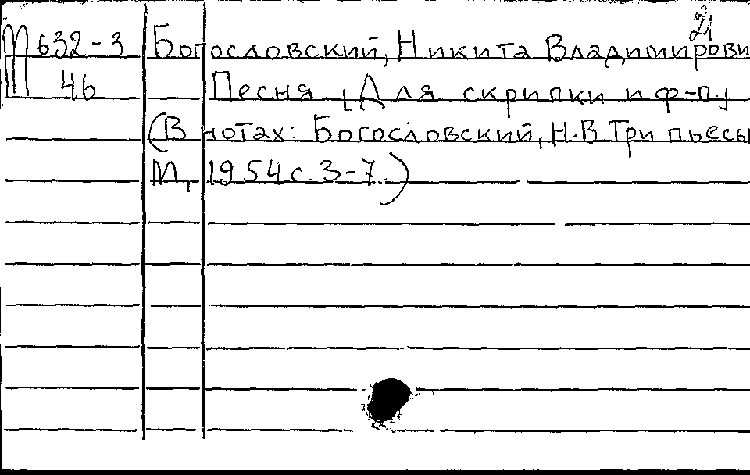 21
М 632-3 Богословский, Никита Владимирови
46 Песня [Для скрипки и ф-п.]
(В нотах: Богословский, Н.В Три пьесы
М, 1954 с. 3-7.)